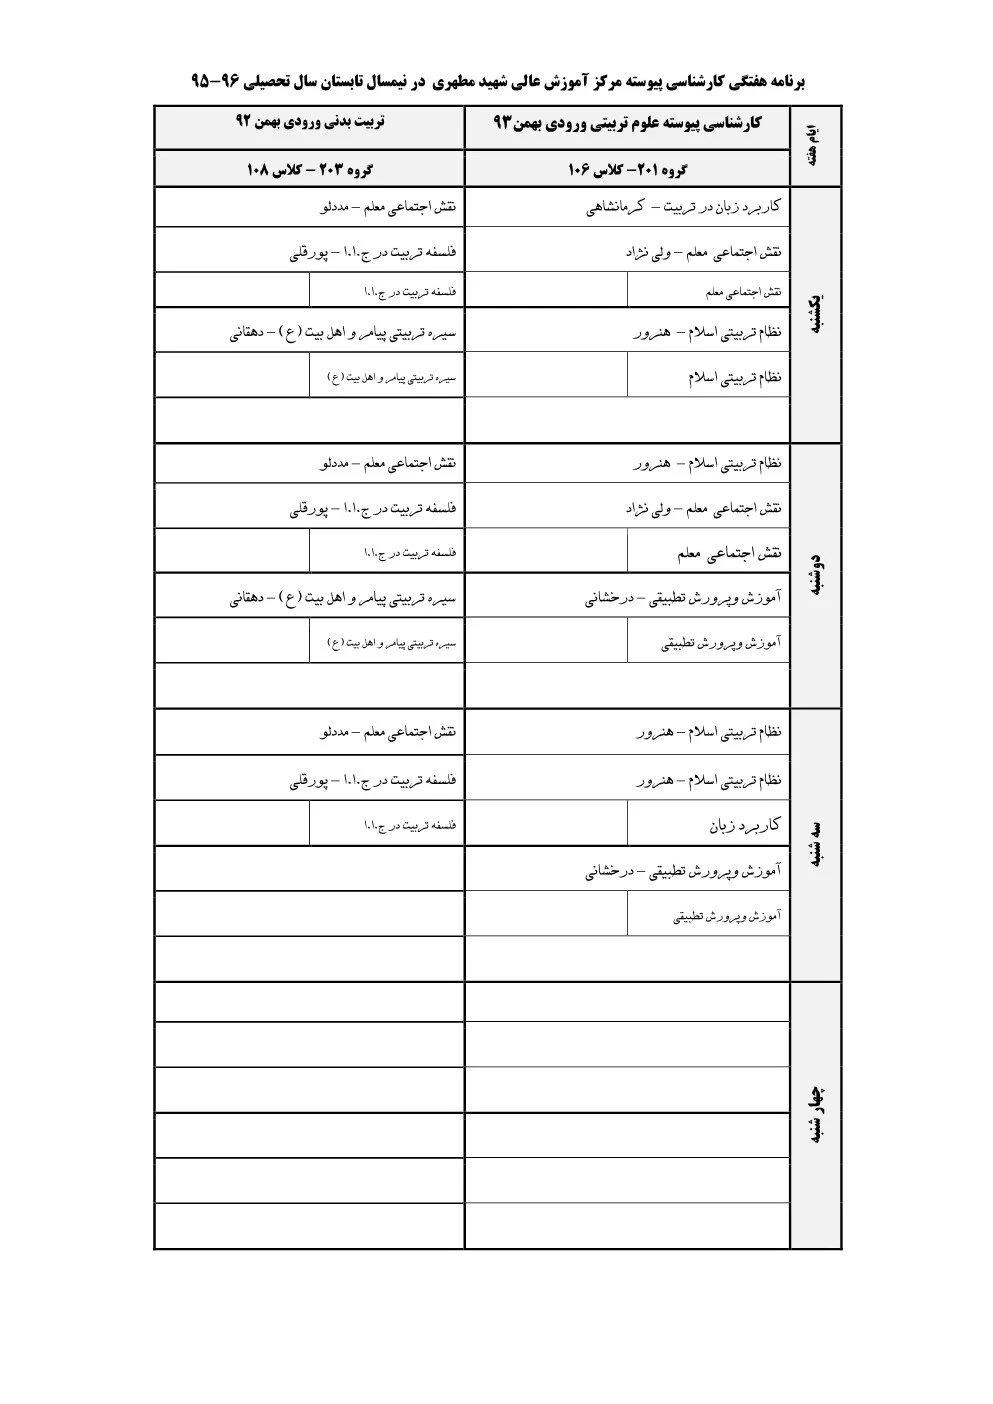 برنامه هفتگی کارشناسی پیوسته مرکز آموزش عالی شهید مطهری در نیمسال تابستان سال تحصیلی ۹۶-۹۵
ایام هفته
کارشناسی پیوسته علوم تربیتی ورودی بهمن۹۳
تربیت بدنی ورودی بهمن ۹۲
گروه ۲۰۱- کلاس ۱۰۶
گروه ۲۰۳ - کلاس ۱۰۸
یکشنبه
کاربرد زبان در تربیت - کرمانشاهی
نقش اجتماعی معلم - مددلو
نقش اجتماعی معلم - ولی نژاد
فلسفه تربیت در ج.ا.ا - پورقلی
نقش اجتماعی معلم
فلسفه تربیت در ج.ا.ا
نظام تربیتی اسلام - هنرور
سیره تربیتی پیامر و اهل بیت (ع) - دهقانی
نظام تربیتی اسلام
سیره تربیتی پیامر و اهل بیت (ع)
دوشنبه
نظام تربیتی اسلام - هنرور
نقش اجتماعی معلم - مددلو
نقش اجتماعی معلم - ولی نژاد
فلسفه تربیت در ج.ا.ا - پورقلی
نقش اجتماعی معلم
فلسفه تربیت در ج.ا.ا
آموزش وپرورش تطبیقی - درخشانی
سیره تربیتی پیامر و اهل بیت (ع) - دهقانی
آموزش وپرورش تطبیقی
سیره تربیتی پیامر و اهل بیت (ع)
سه شنبه
نظام تربیتی اسلام - هنرور
نقش اجتماعی معلم - مددلو
نظام تربیتی اسلام - هنرور
فلسفه تربیت در ج.ا.ا - پورقلی
کاربرد زبان
فلسفه تربیت در ج.ا.ا
آموزش وپرورش تطبیقی - درخشانی
آموزش وپرورش تطبیقی
چهار شنبه